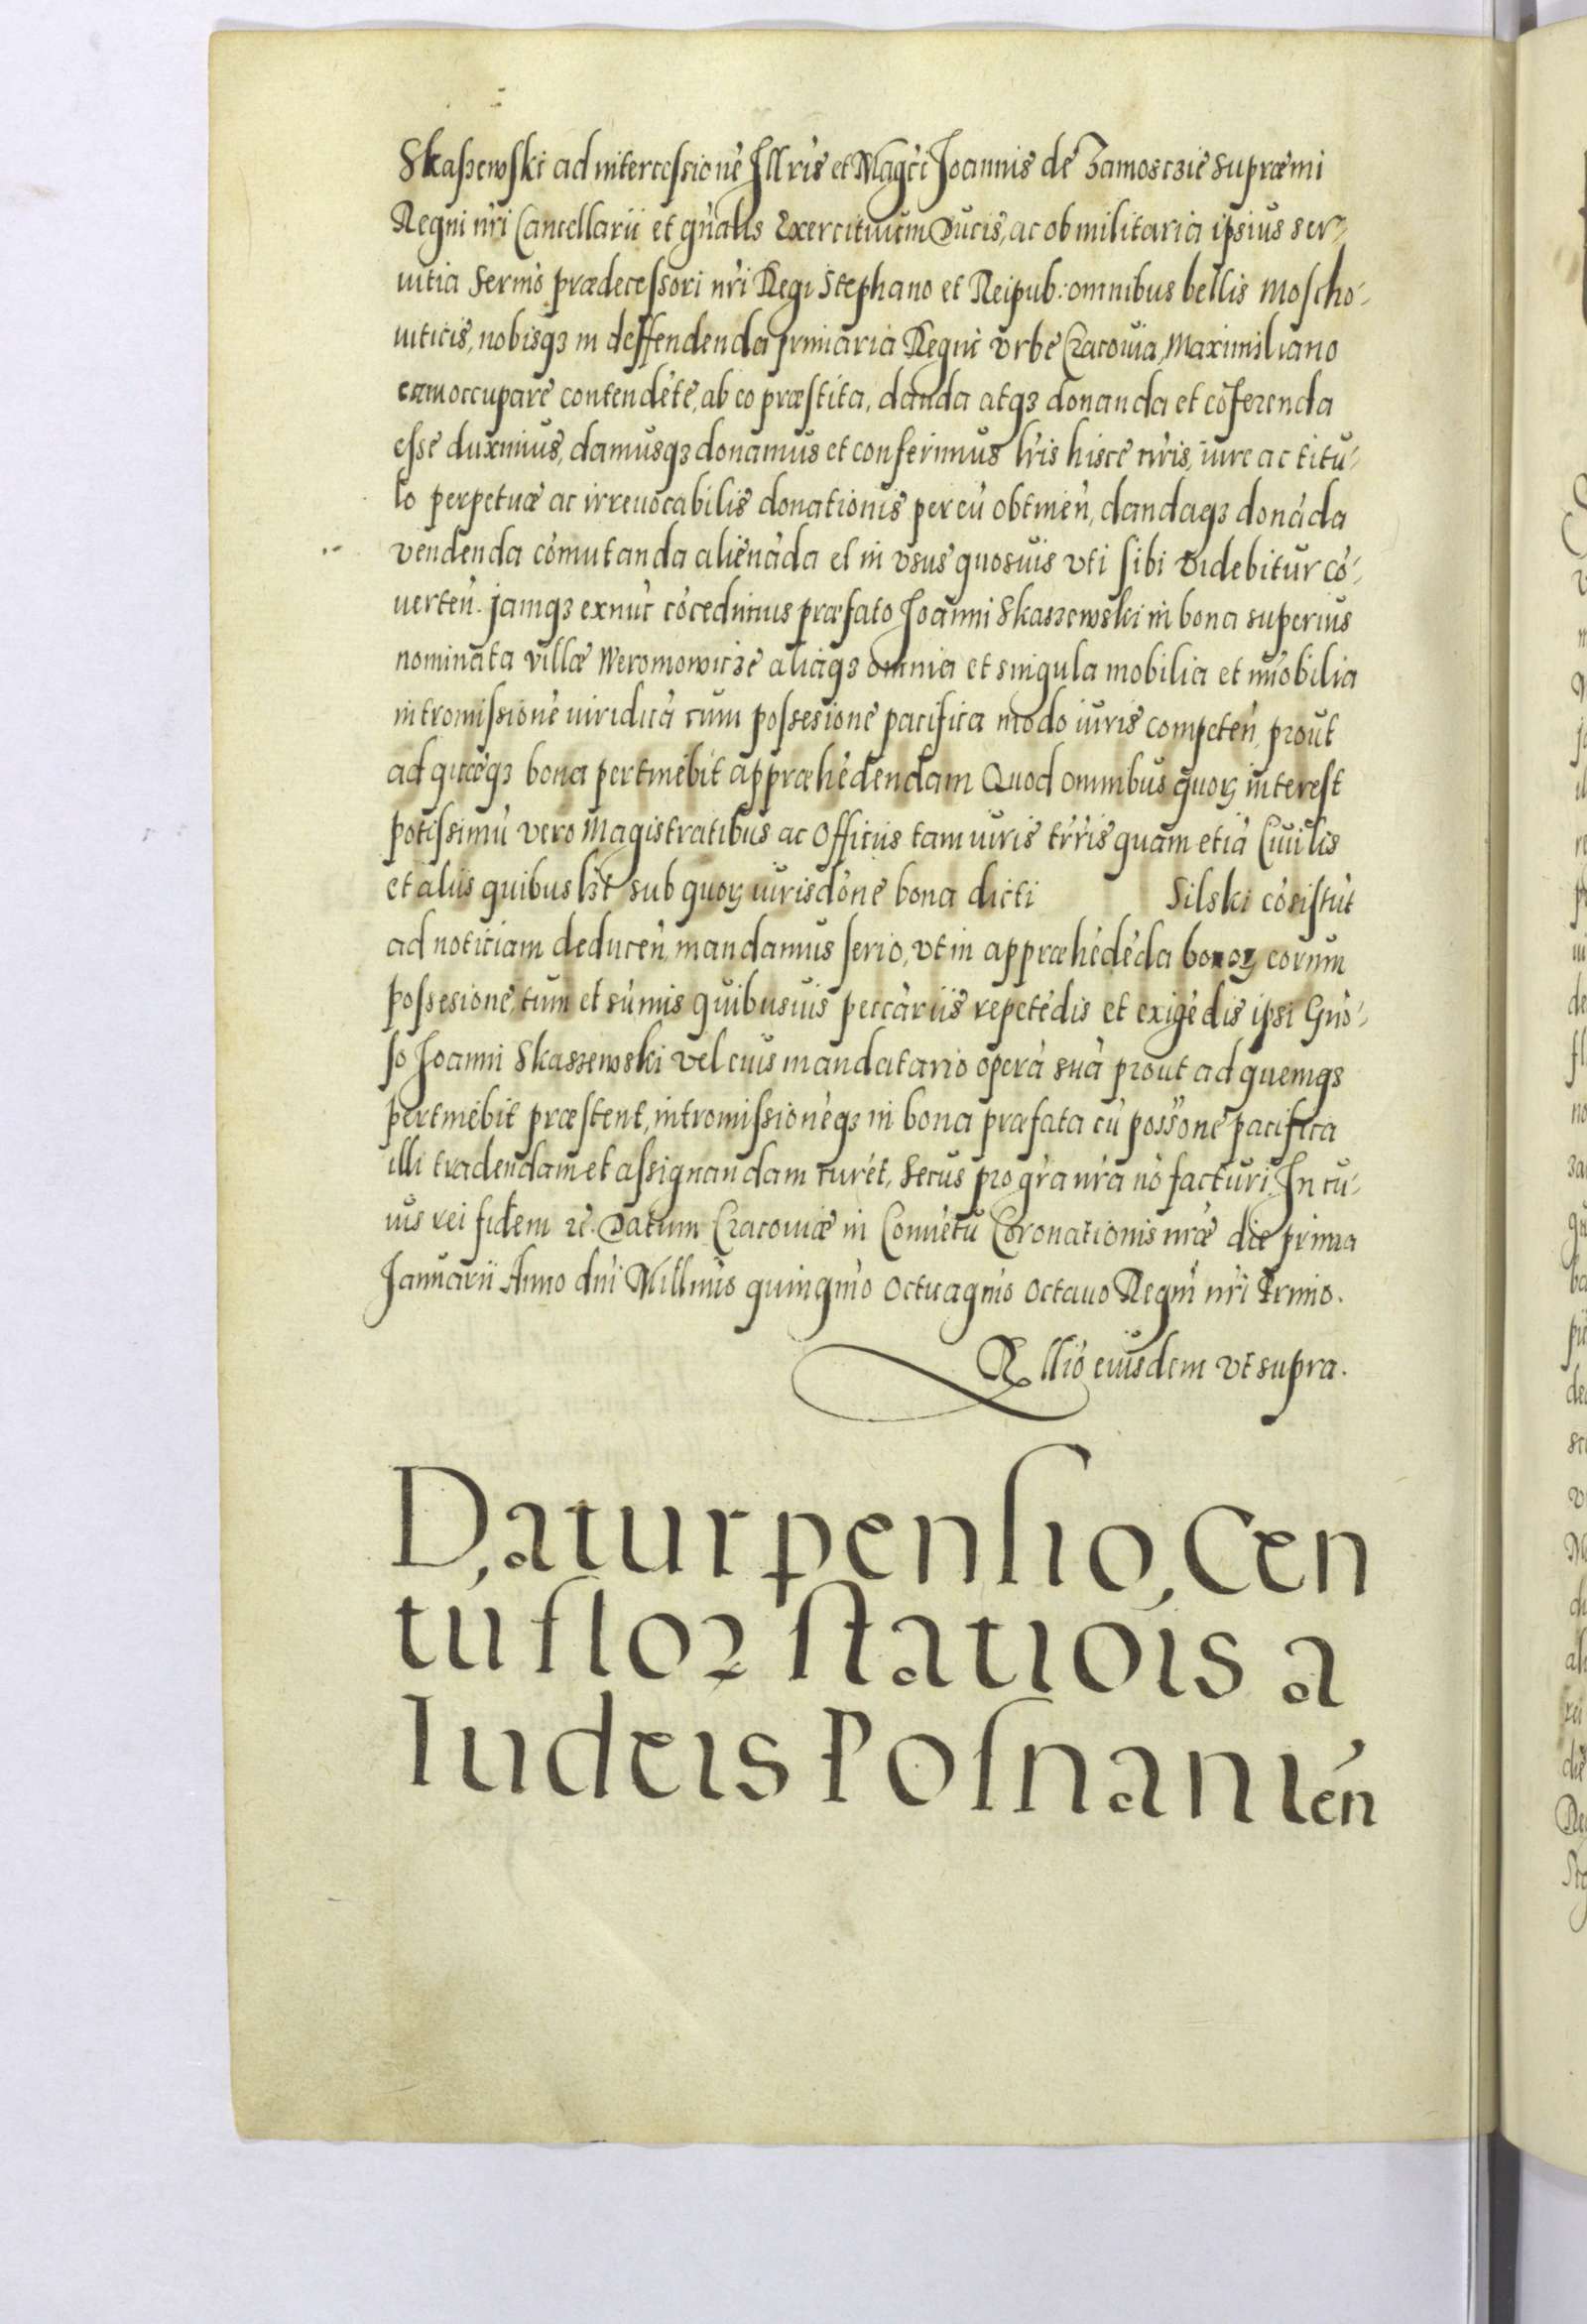 Skaszewski ad intercessionē Jllris et Magci Joannis de Zamosczie supræmi
Regni nri Cancellarii et gnalis Exercituum Ducis, ac ob militaria ipsius ser-
uitia Sermo prædecessori nri Regi Stephano et Reipub: omnibus bellis Moscho-
uiticis, nobisqз in deffendenda primaria Regni vrbe Cracouia, Maximiliano
eam occupare contendēte, ab eo præstita, danda atqз donanda et cōferenda
esse duximus, damusqз donamus et conferimus lris hisce nris, iure ac titu-
lo perpetuæ ac irreuocabilis donationis per eū obtinen, dandaqз donāda
vendenda cōmutanda alienāda et in vsus quosuis vti sibi videbitur cō-
uerten. jamqз exnūc cōcedimus præfato Joanni Skaszewski in bona superius
nominata villæ Weromowicze aliaqз omnia et singula mobilia et īmobilia
intromissionē iuridicā cum possesione pacifica modo iuris competen, prout
ad quæqз bona pertinebit appræhēdendam Quod omnibus quoꝝ interest
potissimū vero Magistratibus ac Officiis tam iuris trris quam etiā Ciuilis
et aliis quibuslзt sub quoꝝ iurisdōne bona dicti Silski cōsistūt
ad noticiam deducen, mandamus serio, vt in appræhēdēda bonoꝝ eorum
possesione, tum et sūmis quibusuis peccāriis repetēdis et exigēdis ipsi Gnō-
so Joanni Skaszewski vel eius mandatario operā suā prout ad quemqз
pertinebit præstent, intromissionēqз in bona præfata cū possone pacifica
illi tradendam et assignandam curēt, secus pro gra nra nō facturi. In cu-
ius rei fidem zē. Datum Cracouiæ in Conuētu Coronationis nræ die prima
Januarii Anno dni Millmo quingmo Octuagmo Octauo Regni nri Primo.
Rllio eiusdem vt supra.
Datur pensio Cen
tū floꝝ statiōis a
Iudeis Posnanien